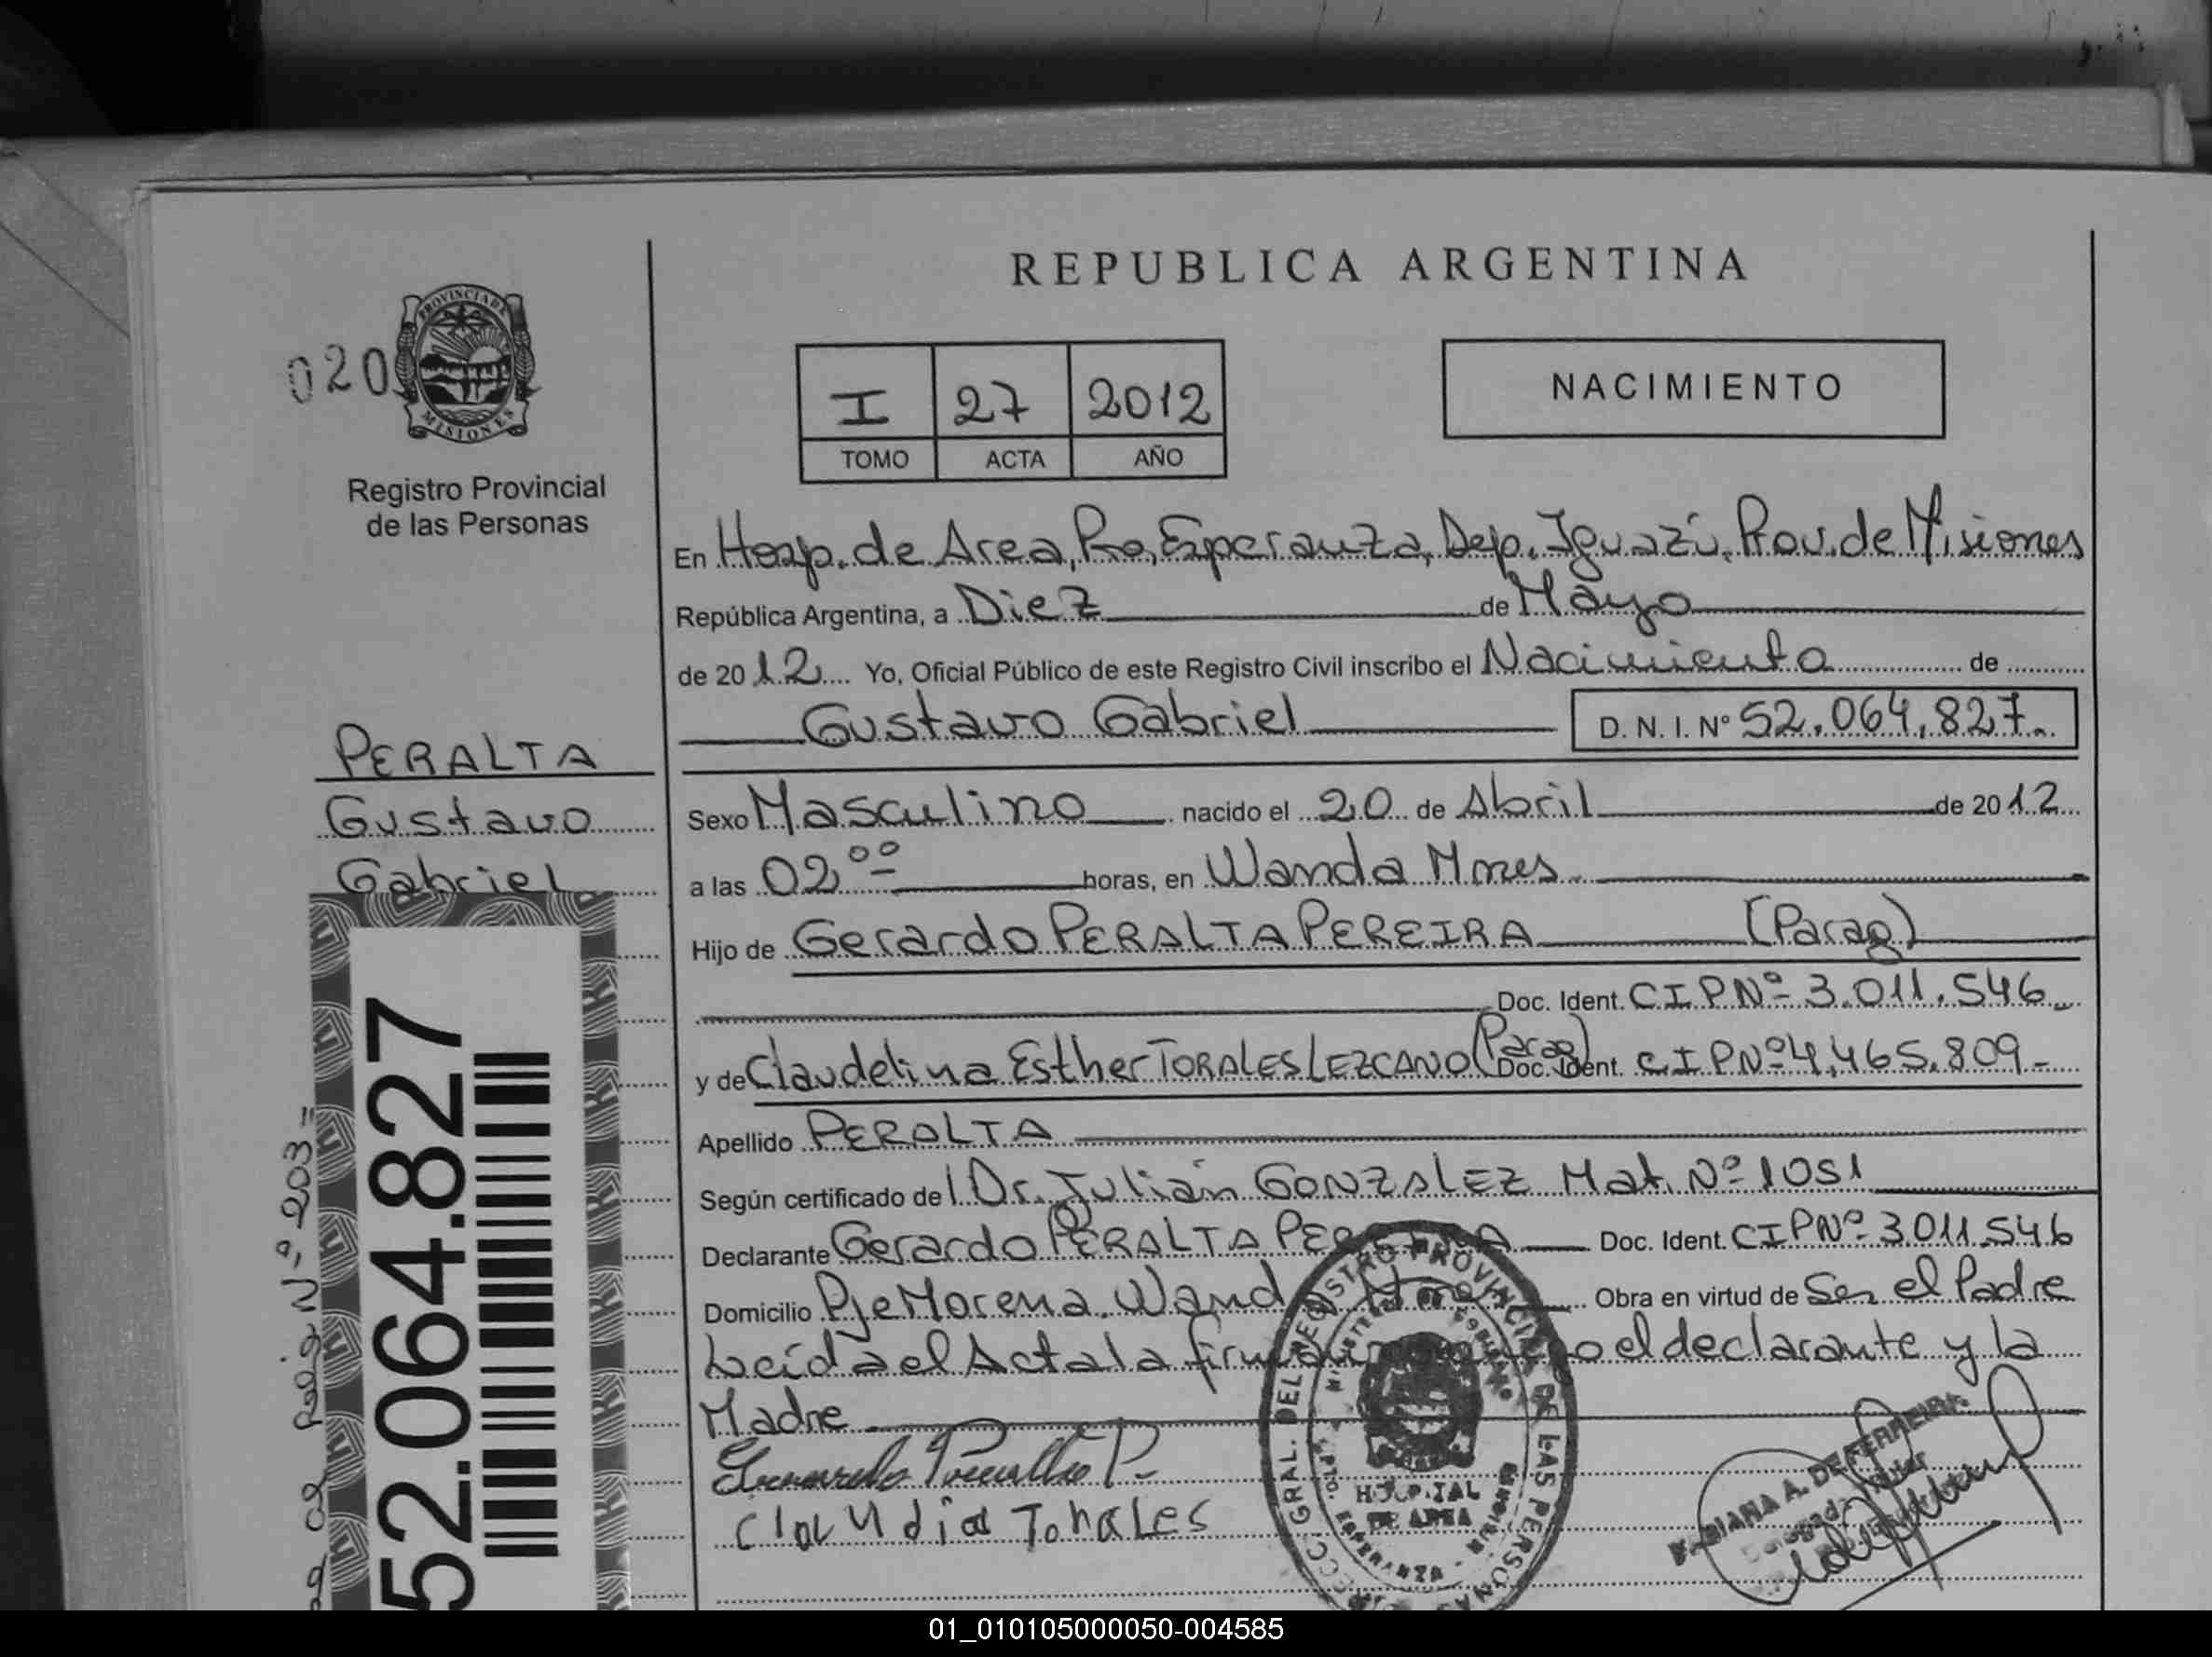 REPUBLICA ARGENTINA
020
PROVINCIA DE
MISIONES
Registro Provincial
de las Personas
I 27 2012
TOMO ACTA AÑO
NACIMIENTO
En Hosp. de Area, Pto, Esperanza, Dep. Iguazú, Prov. de Misiones
República Argentina, a Diez de Mayo
de 2012 Yo, Oficial Público de este Registro Civil inscribo el Nacimiento de
Gustavo Gabriel D. N. I. Nº 52.064.827.
PERALTA
Gustavo
Gabriel
Sexo Masculino nacido el 20 de Abril de 2012
a las 02ºº horas, en Wanda Mnes
Hijo de Gerardo PERALTA PEREIRA (Parag)
Doc. Ident. CIPNº 3.011.546
y de Claudelina Esther TORALES LEZCANO (Parag) Doc. Ident. CIPNº 4.465.809-
Apellido PERALTA
Según certificado del Dr. Julián GONZALEZ Mat. Nº 1051
Declarante Gerardo PERALTA PEREIRA Doc. Ident. CIPNº 3.011.546
Domicilio Pje Morena. Wanda Mnes Obra en virtud de Ser el Padre
Leída el Acta la firman el declarante y la
Madre
Claudia Torales
52.064.827
Nº 203=
DIRECC. GRAL. DEL REGISTRO PROVINCIAL DE LAS PERSONAS
HOSPITAL
DE AREA
ESPERANZA
FABIANA A. DE FERREIRA
01_010105000050-004585